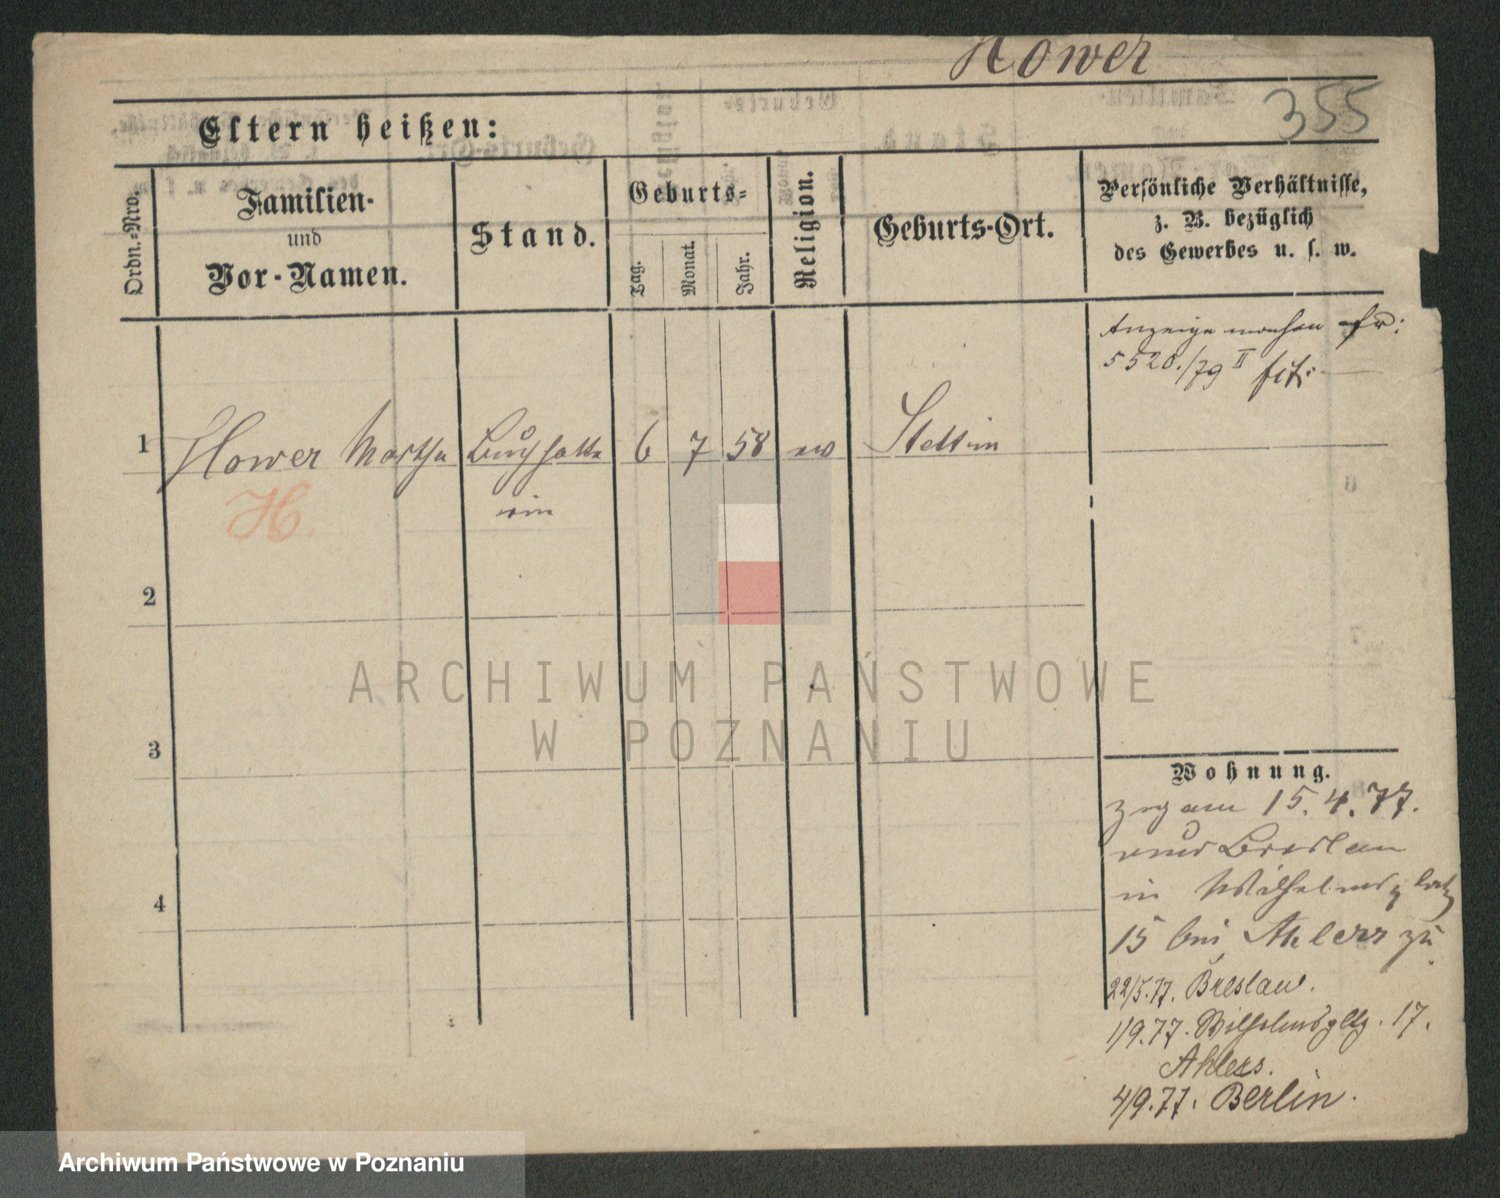 Hower
355
Eltern heißen:
Ordn.-Nro.
Familien-
und
Vor-Namen.
Stand.
Geburts-
Tag.
Monat.
Jahr.
Religion.
Geburts-Ort.
Persönliche Verhältnisse,
z. B. bezüglich
des Gewerbes u. s. w.
Anzeige
5520./79 II
1 Hower Martha Buchhalte 6 7 58 ev Stettin
rin
H
2
3
4
Wohnung.
zog am 15.4.77.
Breslau
in Wilhelmsplatz
15 bei Ahlers zu
22/5.77. Breslau.
1/9.77. Wilhelmspltz. 17.
Ahlers.
4/9.77. Berlin.
ARCHIWUM PAŃSTWOWE
W POZNANIU
Archiwum Państwowe w Poznaniu